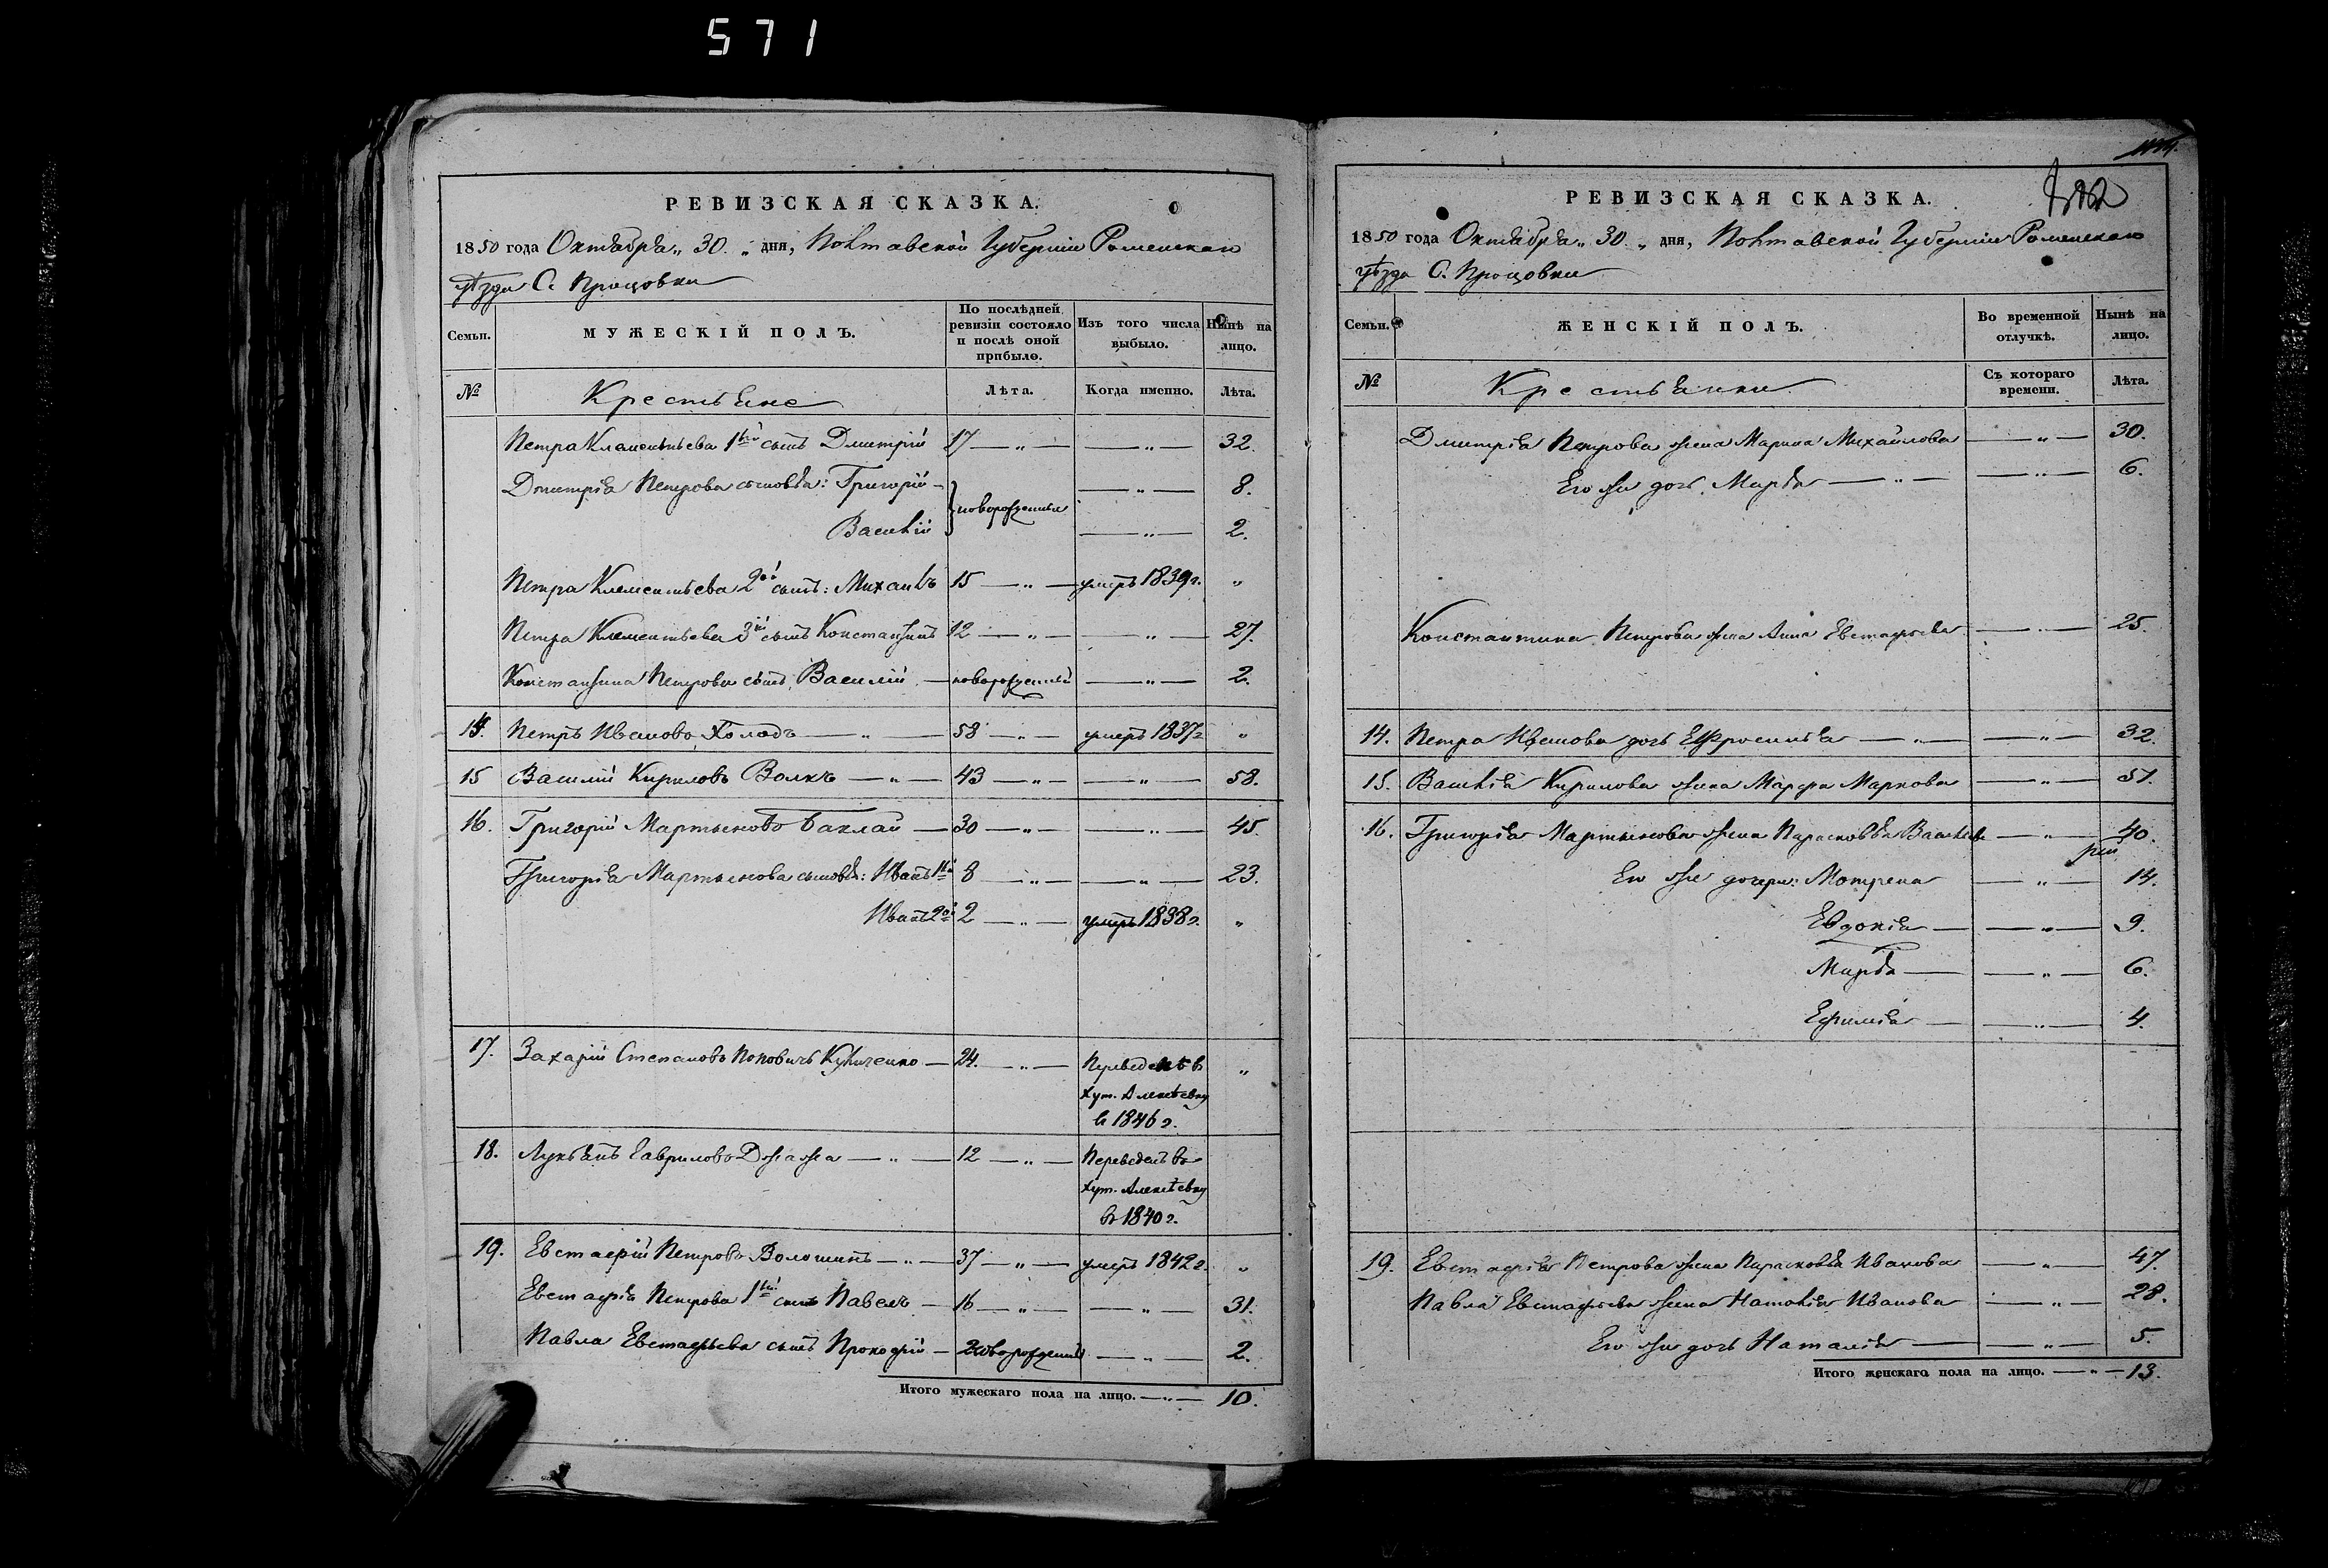 571
РЕВИЗСКАЯ СКАЗКА.
1850 года Октября „ 30. „ дня, Полтавской Губерніи Роменскаго
уѣзда С. Процовки
Семьи.
МУЖЕСКІЙ ПОЛЪ.
По послѣдней ревизіи состояло и послѣ оной прибыло.
Изъ того числа выбыло.
Нынѣ на лицо.
№
Крестьяне
Лѣта.
Когда именно.
Лѣта.
Петра Клементьева 1й сынъ Дмитрій 17 — „ — — „ — 32.
Дмитрія Петрова сыновья: Григорій — новорожденные — „ — 8.
Василій — „ — 2.
Петра Клементьева 2й сынъ: Михаилъ 15 — „ — умеръ 1839 г. „
Петра Клементьева 3й сынъ Константинъ 12 — „ — — „ — 27.
Константина Петрова сынъ Василій — новорожденный — „ — 2.
14. Петръ Ивановъ Холодъ — „ — 58 — „ — умеръ 1837 г „
15 Василій Кириловъ Волкъ — „ — 43 — „ — — „ — 58.
16. Григорій Мартыновъ Баклай — 30 — „ — — „ — 45.
Григорія Мартынова сыновья: Иванъ 1й 8 — „ — — „ — 23.
Иванъ 2й 2 — „ — умеръ 1838 г. „
17. Захарій Степановъ Поповичъ — 24. — „ — Переведенъ въ „
хут. Алексѣевку
въ 1846 г.
18. Лукьянъ Гавриловъ Джаджа — „ — 12 — „ — Переведенъ въ
хут. Алексѣевку
въ 1840 г.
19. Евстафій Петровъ Волошинъ — „ — 37 — „ — умеръ 1842 г. „
Евстафія Петрова 1й сынъ Павелъ — 16 — „ — — „ — 31.
Павла Евстафьева сынъ Прокофій — новорожденный — „ — 2.
Итого мужескаго пола на лицо. — „ — 10.
РЕВИЗСКАЯ СКАЗКА.
1850 года Октября „ 30. „ дня, Полтавской Губерніи Роменскаго
уѣзда С. Процовки
Семьи.
ЖЕНСКІЙ ПОЛЪ.
Во временной отлучкѣ.
Нынѣ на лицо.
№
Крестьянки
Съ котораго времени.
Лѣта.
Дмитрія Петрова жена Марина Михайлова — „ — 30.
Его же дочь, Марья — „ — — „ — 6.
Константина Петрова жена Анна Евстафьева — „ — 25.
14. Петра Иванова дочь Ефросинья — „ — — „ — 32.
15. Василія Кирилова жена Марфа Маркова — „ — 51.
16. Григорія Мартынова жена Парасковья Васильева — „ — 40.
Его же дочери: Мотрена — „ — 14.
Евдокія — — „ — 9.
Марья — — „ — 6.
Ефимія — — „ — 4.
19. Евстафія Петрова жена Парасковья Иванова — „ — 47.
Павла Евстафьева жена Наталія Иванова — „ — 28.
Его же дочь Наталія — — „ — 5.
Итого женскаго пола на лицо. — „ — 13.